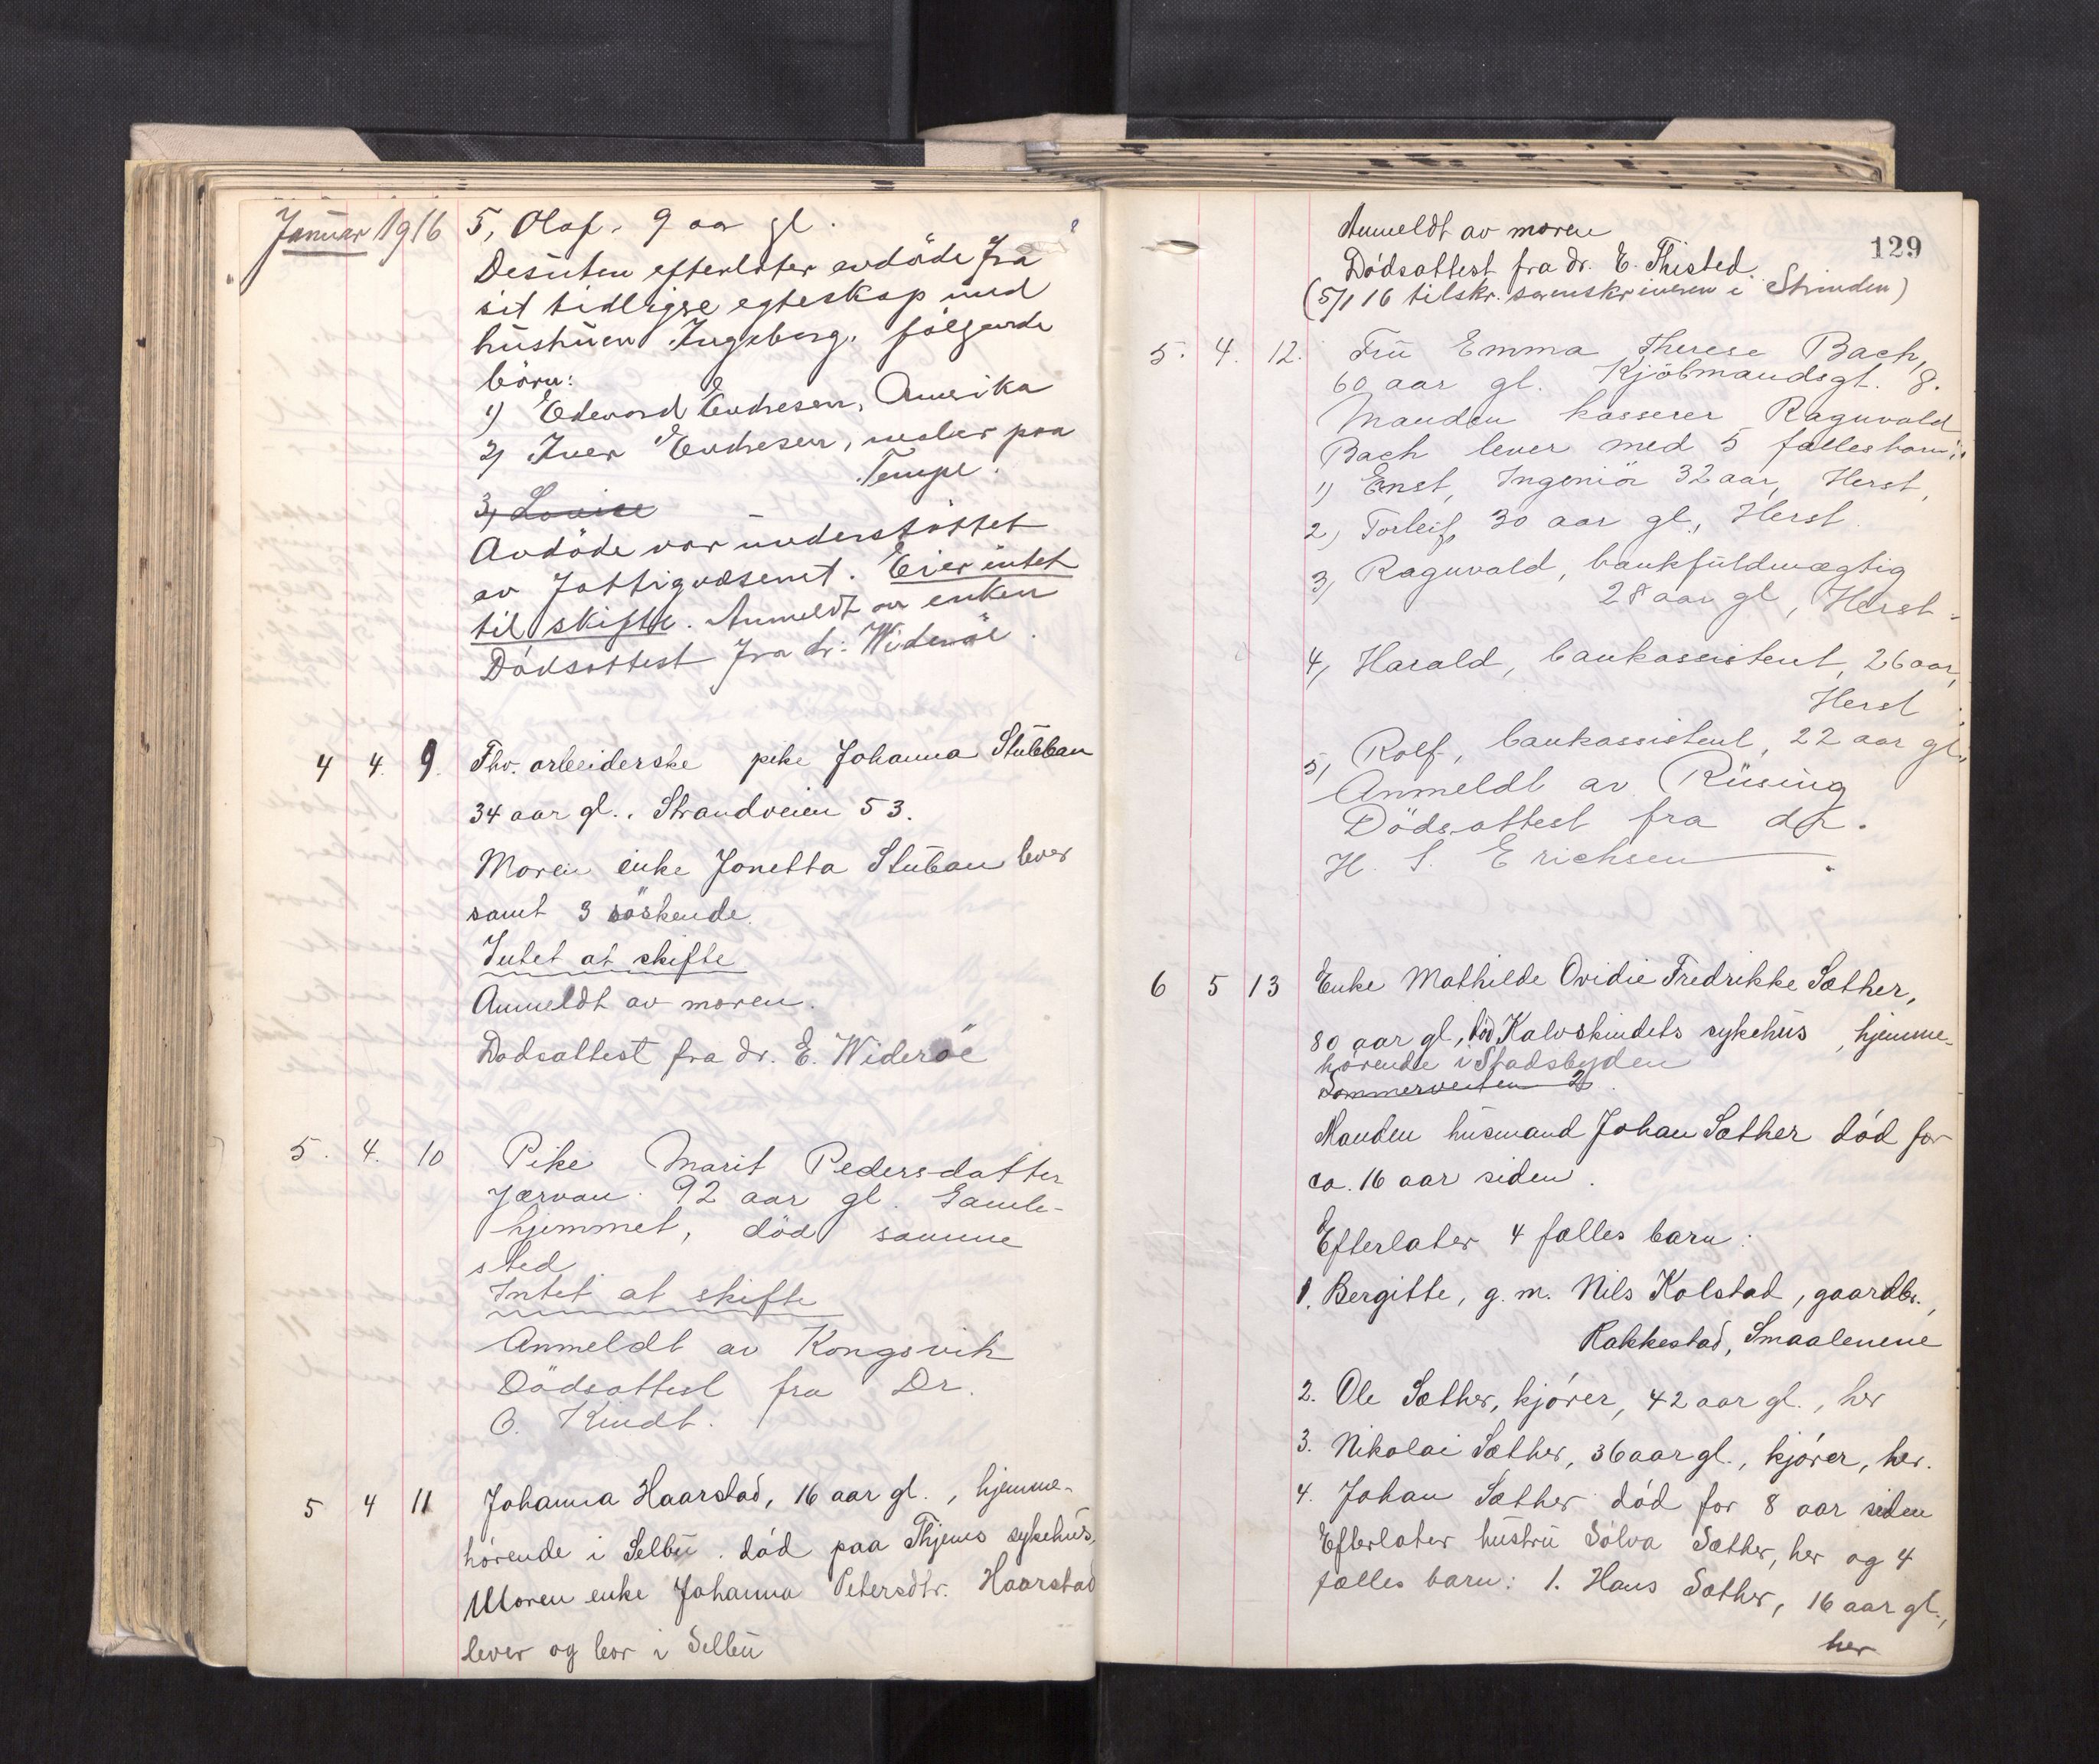 Januar 1916
5, Olaf, 9 aar gl.
Desuten efterlater avdöde fra
sit tidligre egteskap med
hustruen Ingeborg, fölgende
börn:
1) Edevard Endresen, Amerika
2) Iver Endresen, paa
Tempe.
3, Louise
Avdöde var understöttet
av Fattigvæsenet. Eier intet
til skifte. Anmeldt av enken
Dödsattest fra dr. Wideröe.
4 4. 9. Fhv. arbeiderske pike Johanna Stubban
34 aar gl., Strandveien 53.
Moren enke Jonetta Stuban lever
samt 3 söskende.
Intet at skifte
Anmeldt av moren.
Dødsattest fra dr. E. Wideröe
5. 4. 10 Pike Marit Pedersdatter
Jærvan. 92 aar gl. Gamle-
hjemmet, död samme
sted
Intet at skifte
Anmeldt av Kongsvik
Dödsattest fra Dr.
O. Kindt.
5 4 11 Johanna Haarstad, 16 aar gl., hjemme-
hörende i Selbu. död paa Thjems sykehus,
Moren enke Johanna Petersdtr. Haarstad
lever og bor i Selbu
129
Anmeldt av moren
Dödsattest fra dr. E. Thisted.
(5/1 16 tilskr. sorenskriveren i Strinden)
5. 4. 12. Fru Emma Therese Bach,
60 aar gl. Kjöbmandsgt. 8.
Manden kasserer Ragnvald
Bach lever med 5 fællesbarn:
1) Enst, Ingeniör 32 aar, Herst,
2, Torleif, 30 aar gl., Herst
3, Ragnvald, bankfuldmægtig
28 aar gl, Herst.
4, Harald, bankassistent, 26 aar,
Herst
5, Rolf, bankassistent, 22 aar gl.,
Anmeldt av Rüsing
Dödsattest fra dr.
H. S. Erichsen.
6 5 13 Enke Mathilde Ovidie Fredrikke Sæther,
80 aar gl., död Kalvskindets sykehus, hjemme-
hörende i Stadsbygden
Sommerveiten 2.
Manden husmand Johan Sæther död for
ca. 16 aar siden.
Efterlater 4 fælles barn:
1. Bergitte, g. m. Nils Kolstad, gaardbr.,
Rakkestad, Smaalenene
2. Ole Sæther, kjörer, 42 aar gl., her
3. Nikolai Sæther, 36 aar gl., kjörer, her.
4. Johan Sæther död for 8 aar siden
Efterlater hustru Sölva Sæther, her og 4
fælles barn: 1. Hans Sæther, 16 aar gl.,
her